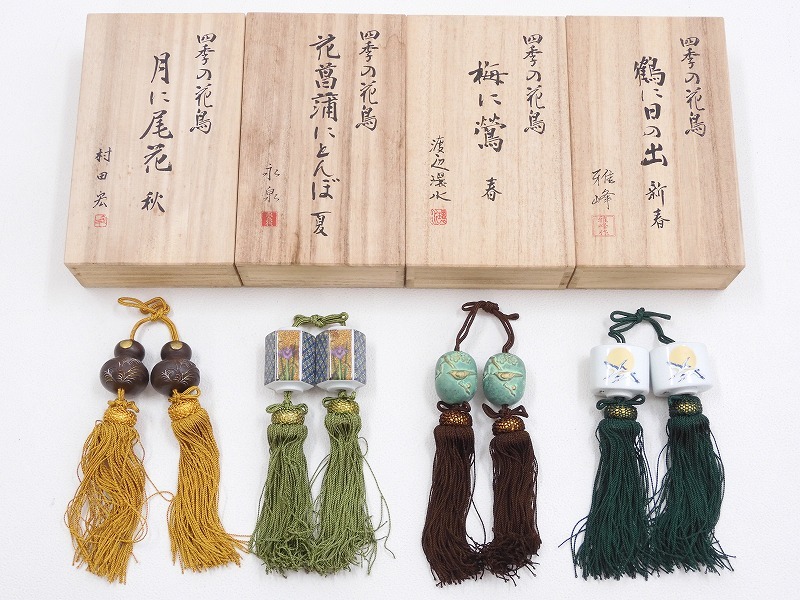 四季の花鳥
鶴に日の出 新春
雅峰
四季の花鳥
梅に鶯 春
四季の花鳥
花菖蒲にとんぼ 夏
永泉
四季の花鳥
月に尾花 秋
村田宏